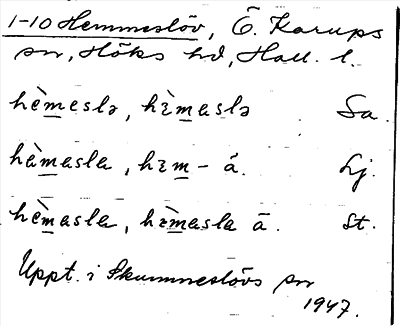 1-10 Hemmeslöv, Ö. Karups
sn, Höks hd, Hall. l.
hèmeslə, hèmaslə Sa.
hàmasla, hæm-å. Lj.
hèmasla, hèmasla å. St.
Uppt. i Skummeslövs sn
1947.